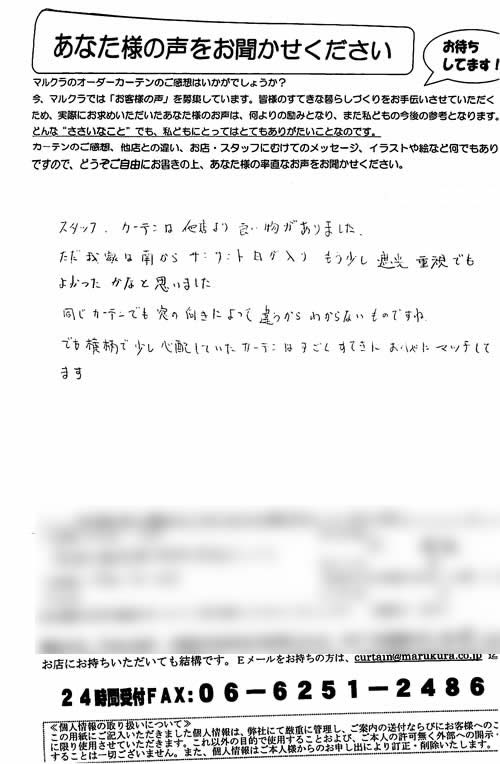 あなた様の声をお聞かせください
お待ち
してます!
マルクラのオーダーカーテンのご感想はいかがでしょうか?
今、マルクラでは「お客様の声」を募集しています。皆様のすてきな暮らしづくりをお手伝いさせていただく
ため、実際にお求めいただいたあなた様のお声は、何よりの励みとなり、また私どもの今後の参考となります。
どんな“ささいなこと”でも、私どもにとってはとてもありがたいことなのです。
カーテンのご感想、他店との違い、お店・スタッフにむけてのメッセージ、イラストや絵など何でもあり
ですので、どうぞご自由にお書きの上、あなた様の率直なお声をお聞かせください。
スタッフ、カーテンは他店より良い物がありました。
ただ我家は南からサンサント日が入り もう少し遮光重視でも
よかったかなと思いました
同じカーテンでも窓の向きによって違うからわからないものですね
でも横柄で少し心配していたカーテンはすごくすてきに おへやに マッチして
ます
お店にお持ちいただいても結構です。Eメールをお持ちの方は、curtain@marukura.co.jp
24時間受付FAX:06-6251-2486
≪個人情報の取り扱いについて≫
この用紙にご記入いただきました個人情報は、弊社にて厳重に管理し、ご案内の送付ならびにお客様へのご
に限り使用させていただきます。これ以外の目的で使用することおよび、ご本人の許可無く外部への開示・
することは一切ございません。また、個人情報はご本人様からのお申し出により訂正・削除いたします。